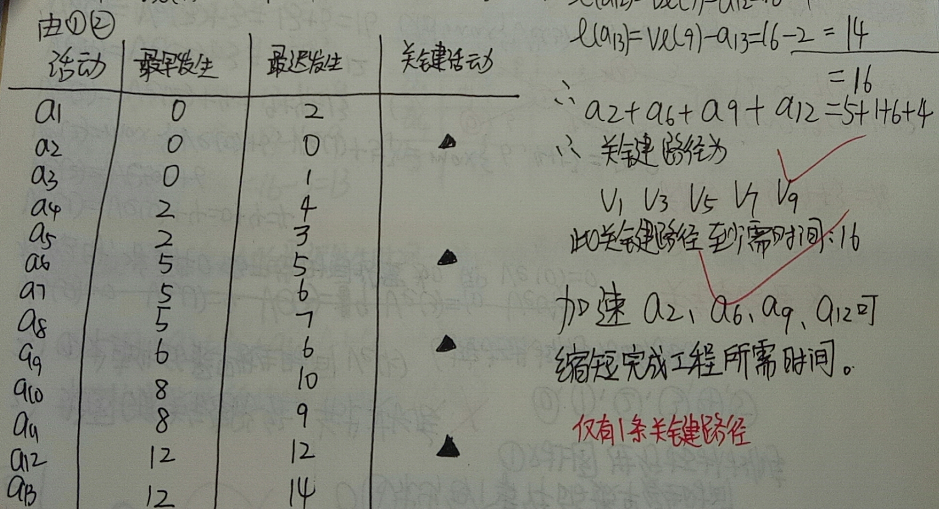 由①②
活动 最早发生 最迟发生 关键活动
a1 0 2
a2 0 0 ▲
a3 0 1
a4 2 4
a5 2 3
a6 5 5 ▲
a7 5 6
a8 5 7
a9 6 6 ▲
a10 8 10
a11 8 9
a12 12 12 ▲
a13 12 14
l(a13)=Vl(9)-a13=16-2=14
∴ a2+a6+a9+a12=5+1+6+4
=16
∴ 关键路径为
V1 V3 V5 V7 V9
此关键路径至少需时间:16
加速 a2、a6、a9、a12可
缩短完成工程所需时间。
仅有1条关键路径